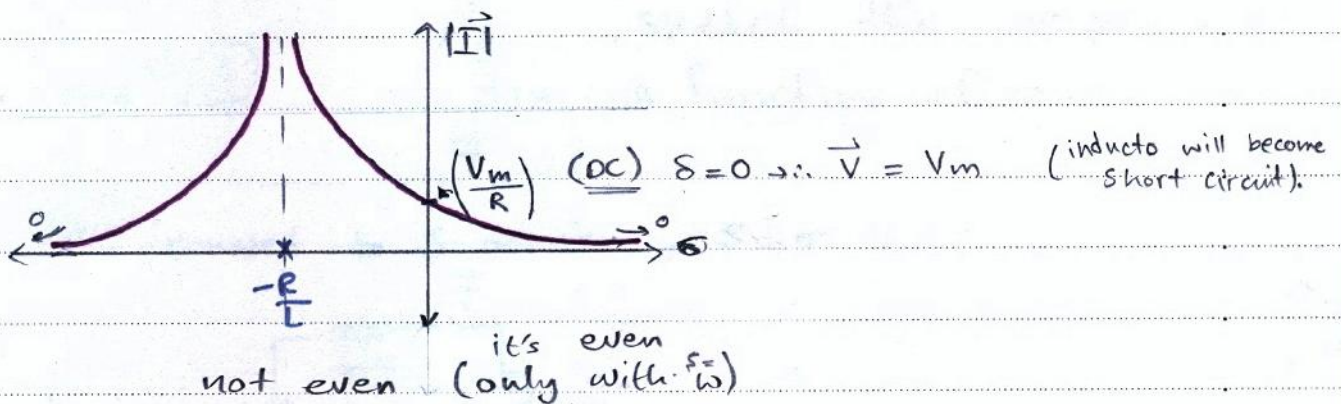 |I⃗|
(Vm/R) (DC) δ=0 →∴ V⃗ = Vm (inducto will become
short circuit).
0
0
σ
-R/L
it's even
not even (only with s=ω)